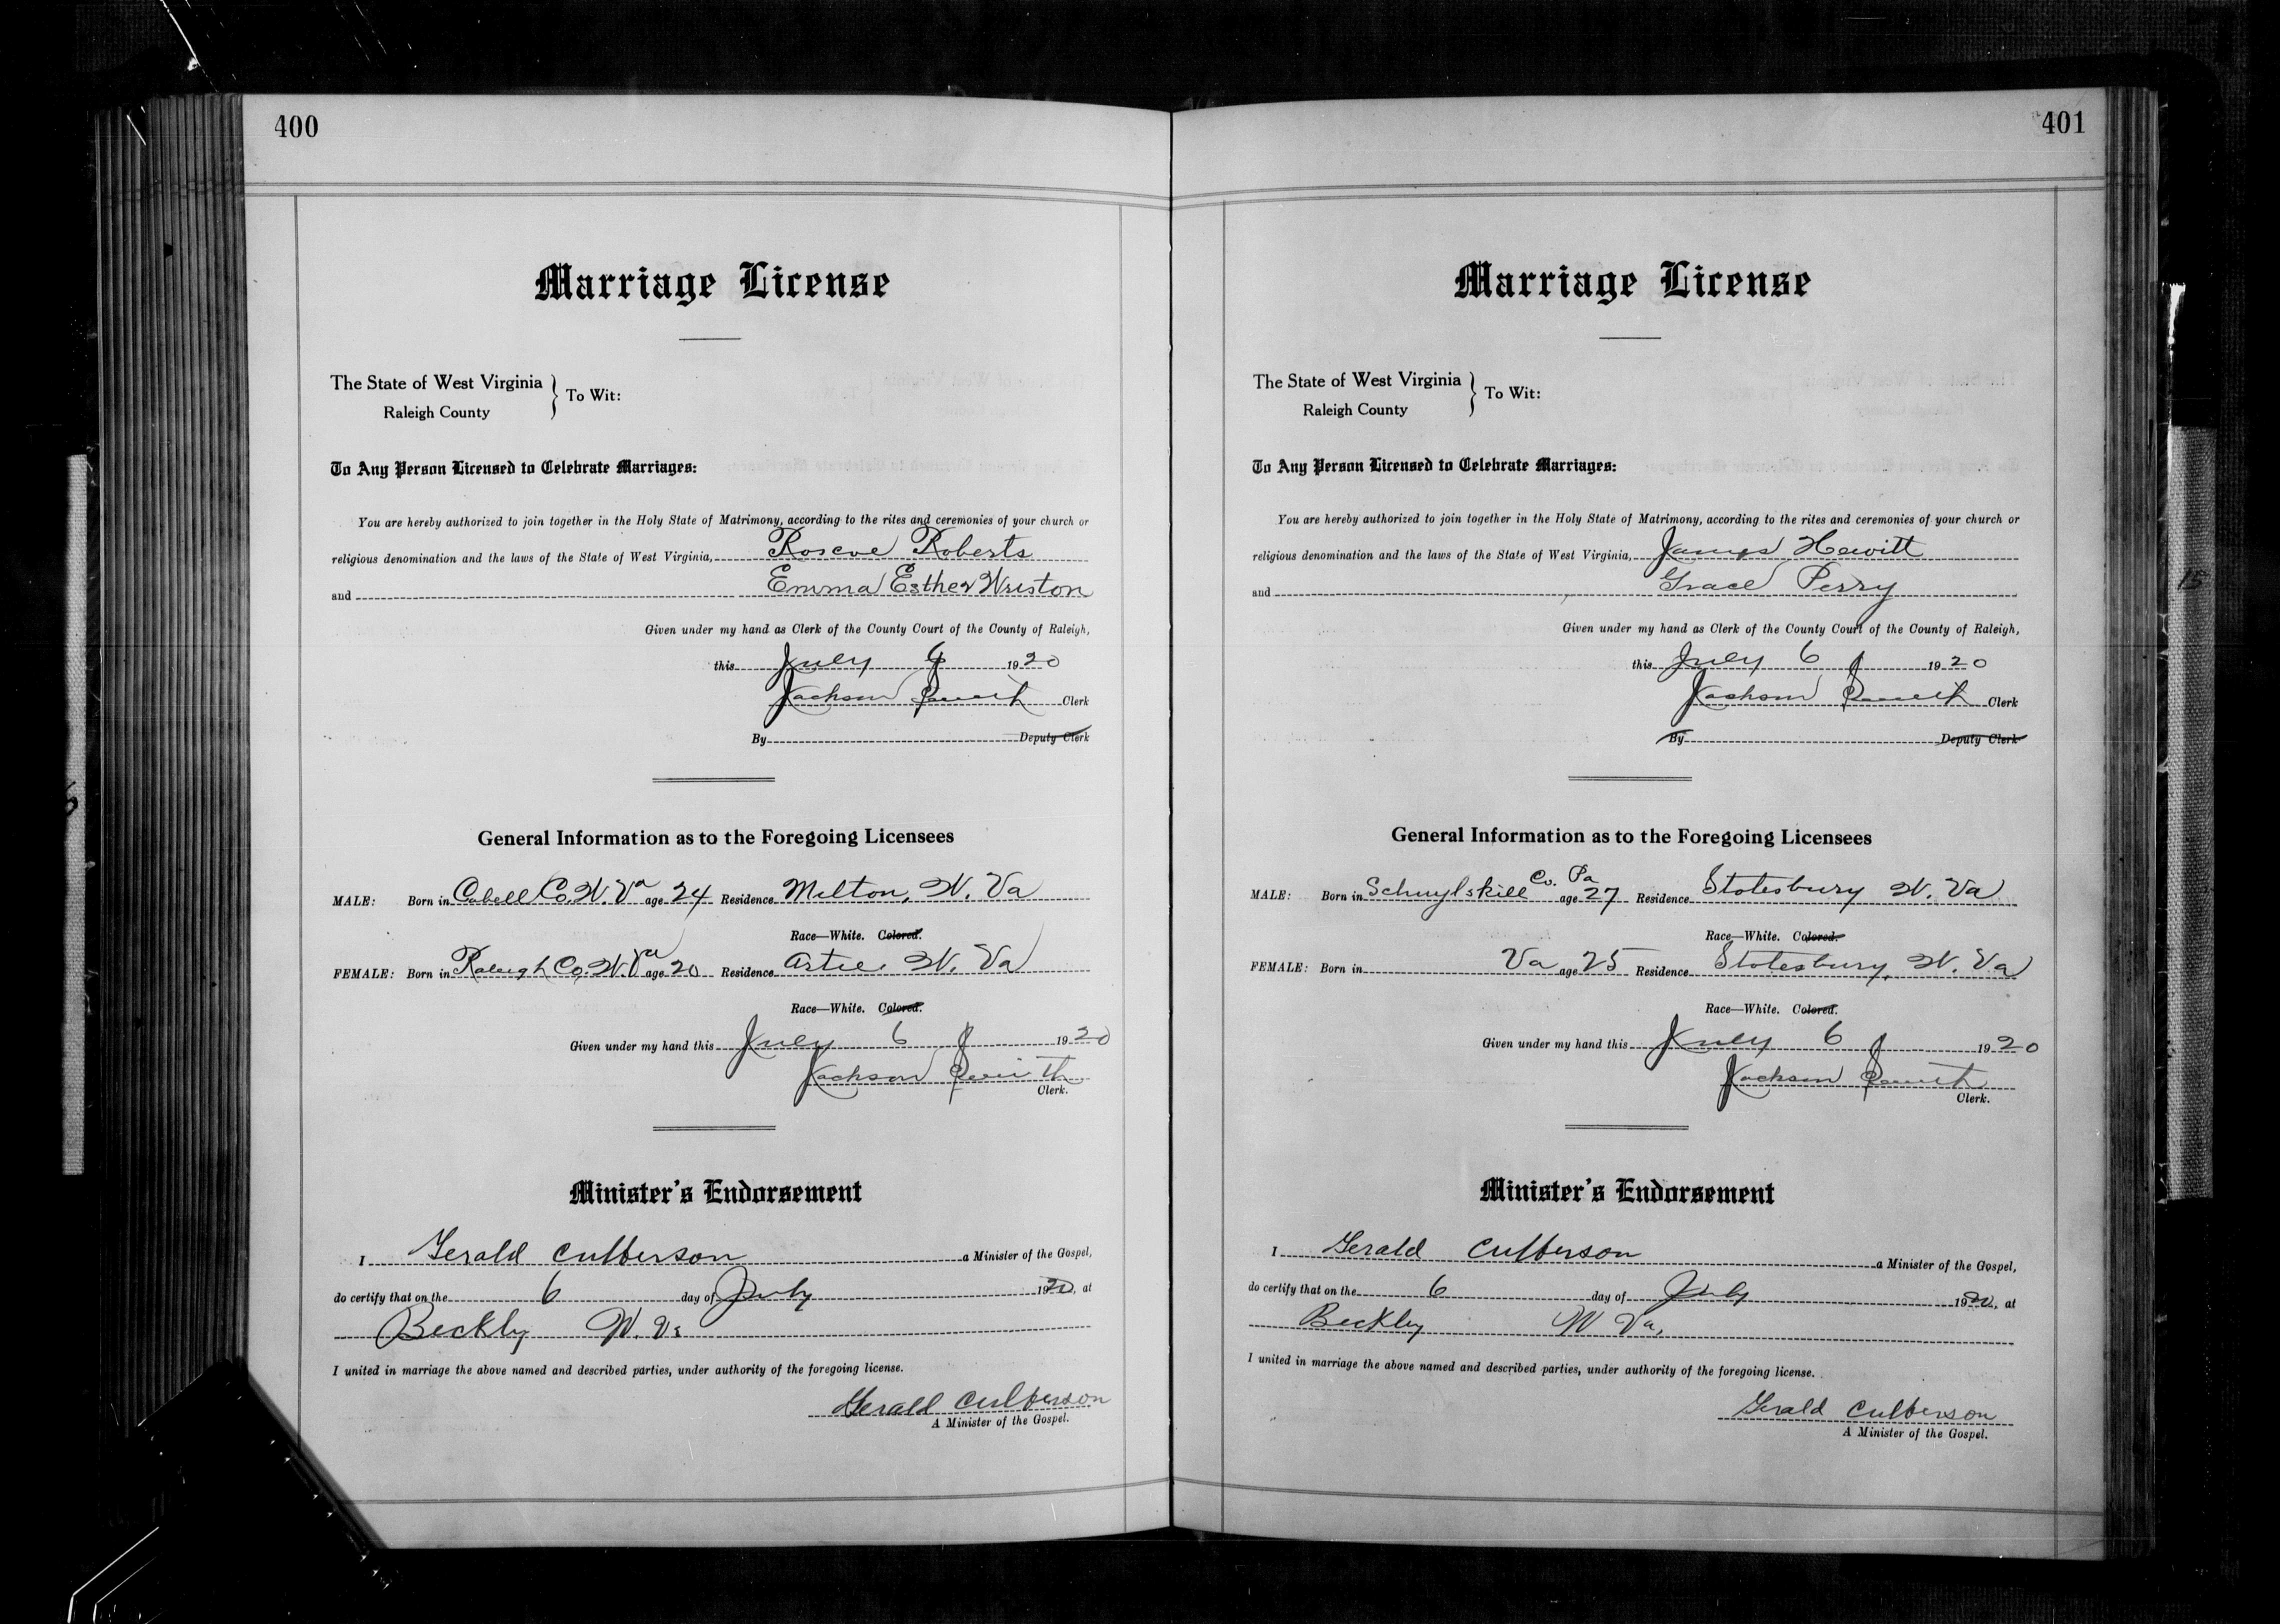 400
Marriage License
The State of West Virginia
Raleigh County
To Wit:
To Any Person Licensed to Celebrate Marriages:
You are hereby authorized to join together in the Holy State of Matrimony, according to the rites and ceremonies of your church or
religious denomination and the laws of the State of West Virginia, Roscoe Roberts
and Emma Esther Wriston
Given under my hand as Clerk of the County Court of the County of Raleigh,
this July 6 1920
Jackson Smith Clerk
By Deputy Clerk
General Information as to the Foregoing Licensees
MALE: Born in Cabell Co. W. Va age 24 Residence Milton, W. Va
Race—White. Colored.
FEMALE: Born in Raleigh Co. W. Va age 20 Residence Artie W. Va
Race—White. Colored.
Given under my hand this July 6 1920
Jackson Smith
Clerk.
Minister's Endorsement
I Gerald Culberson a Minister of the Gospel,
do certify that on the 6 day of July 1920, at
Beckly W. Va
I united in marriage the above named and described parties, under authority of the foregoing license.
Gerald Culberson
A Minister of the Gospel.
401
Marriage License
The State of West Virginia
Raleigh County
To Wit:
To Any Person Licensed to Celebrate Marriages:
You are hereby authorized to join together in the Holy State of Matrimony, according to the rites and ceremonies of your church or
religious denomination and the laws of the State of West Virginia, James Hewitt
and Grace Perry
Given under my hand as Clerk of the County Court of the County of Raleigh,
this July 6 1920
Jackson Smith Clerk
By Deputy Clerk
General Information as to the Foregoing Licensees
MALE: Born in Schuylskill Co. Pa age 27 Residence Stotesbury W. Va
Race—White. Colored.
FEMALE: Born in Va age 25 Residence Stotesbury, W. Va
Race—White. Colored.
Given under my hand this July 6 1920
Jackson Smith
Clerk.
Minister's Endorsement
I Gerald Culberson a Minister of the Gospel,
do certify that on the 6 day of July 1920, at
Beckley W Va,
I united in marriage the above named and described parties, under authority of the foregoing license.
Gerald Culberson
A Minister of the Gospel.
15